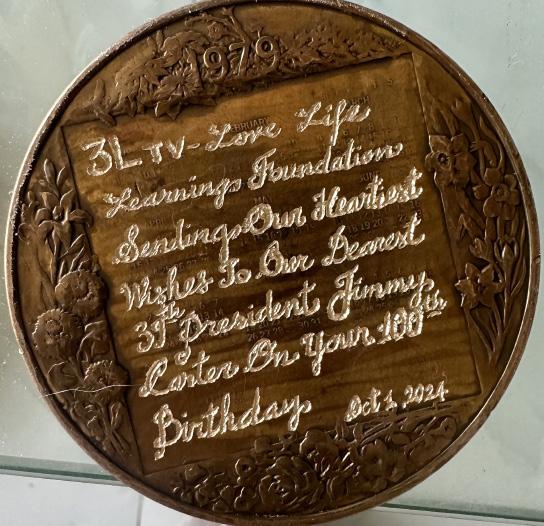 1979
3L TV - Love Life
Learnings Foundation
Sendings Our Heartiest
Wishes To Our Dearest
39th President Jimmy
Carter On Your 100th
Birthday Oct 1, 2024
FEBRUARY